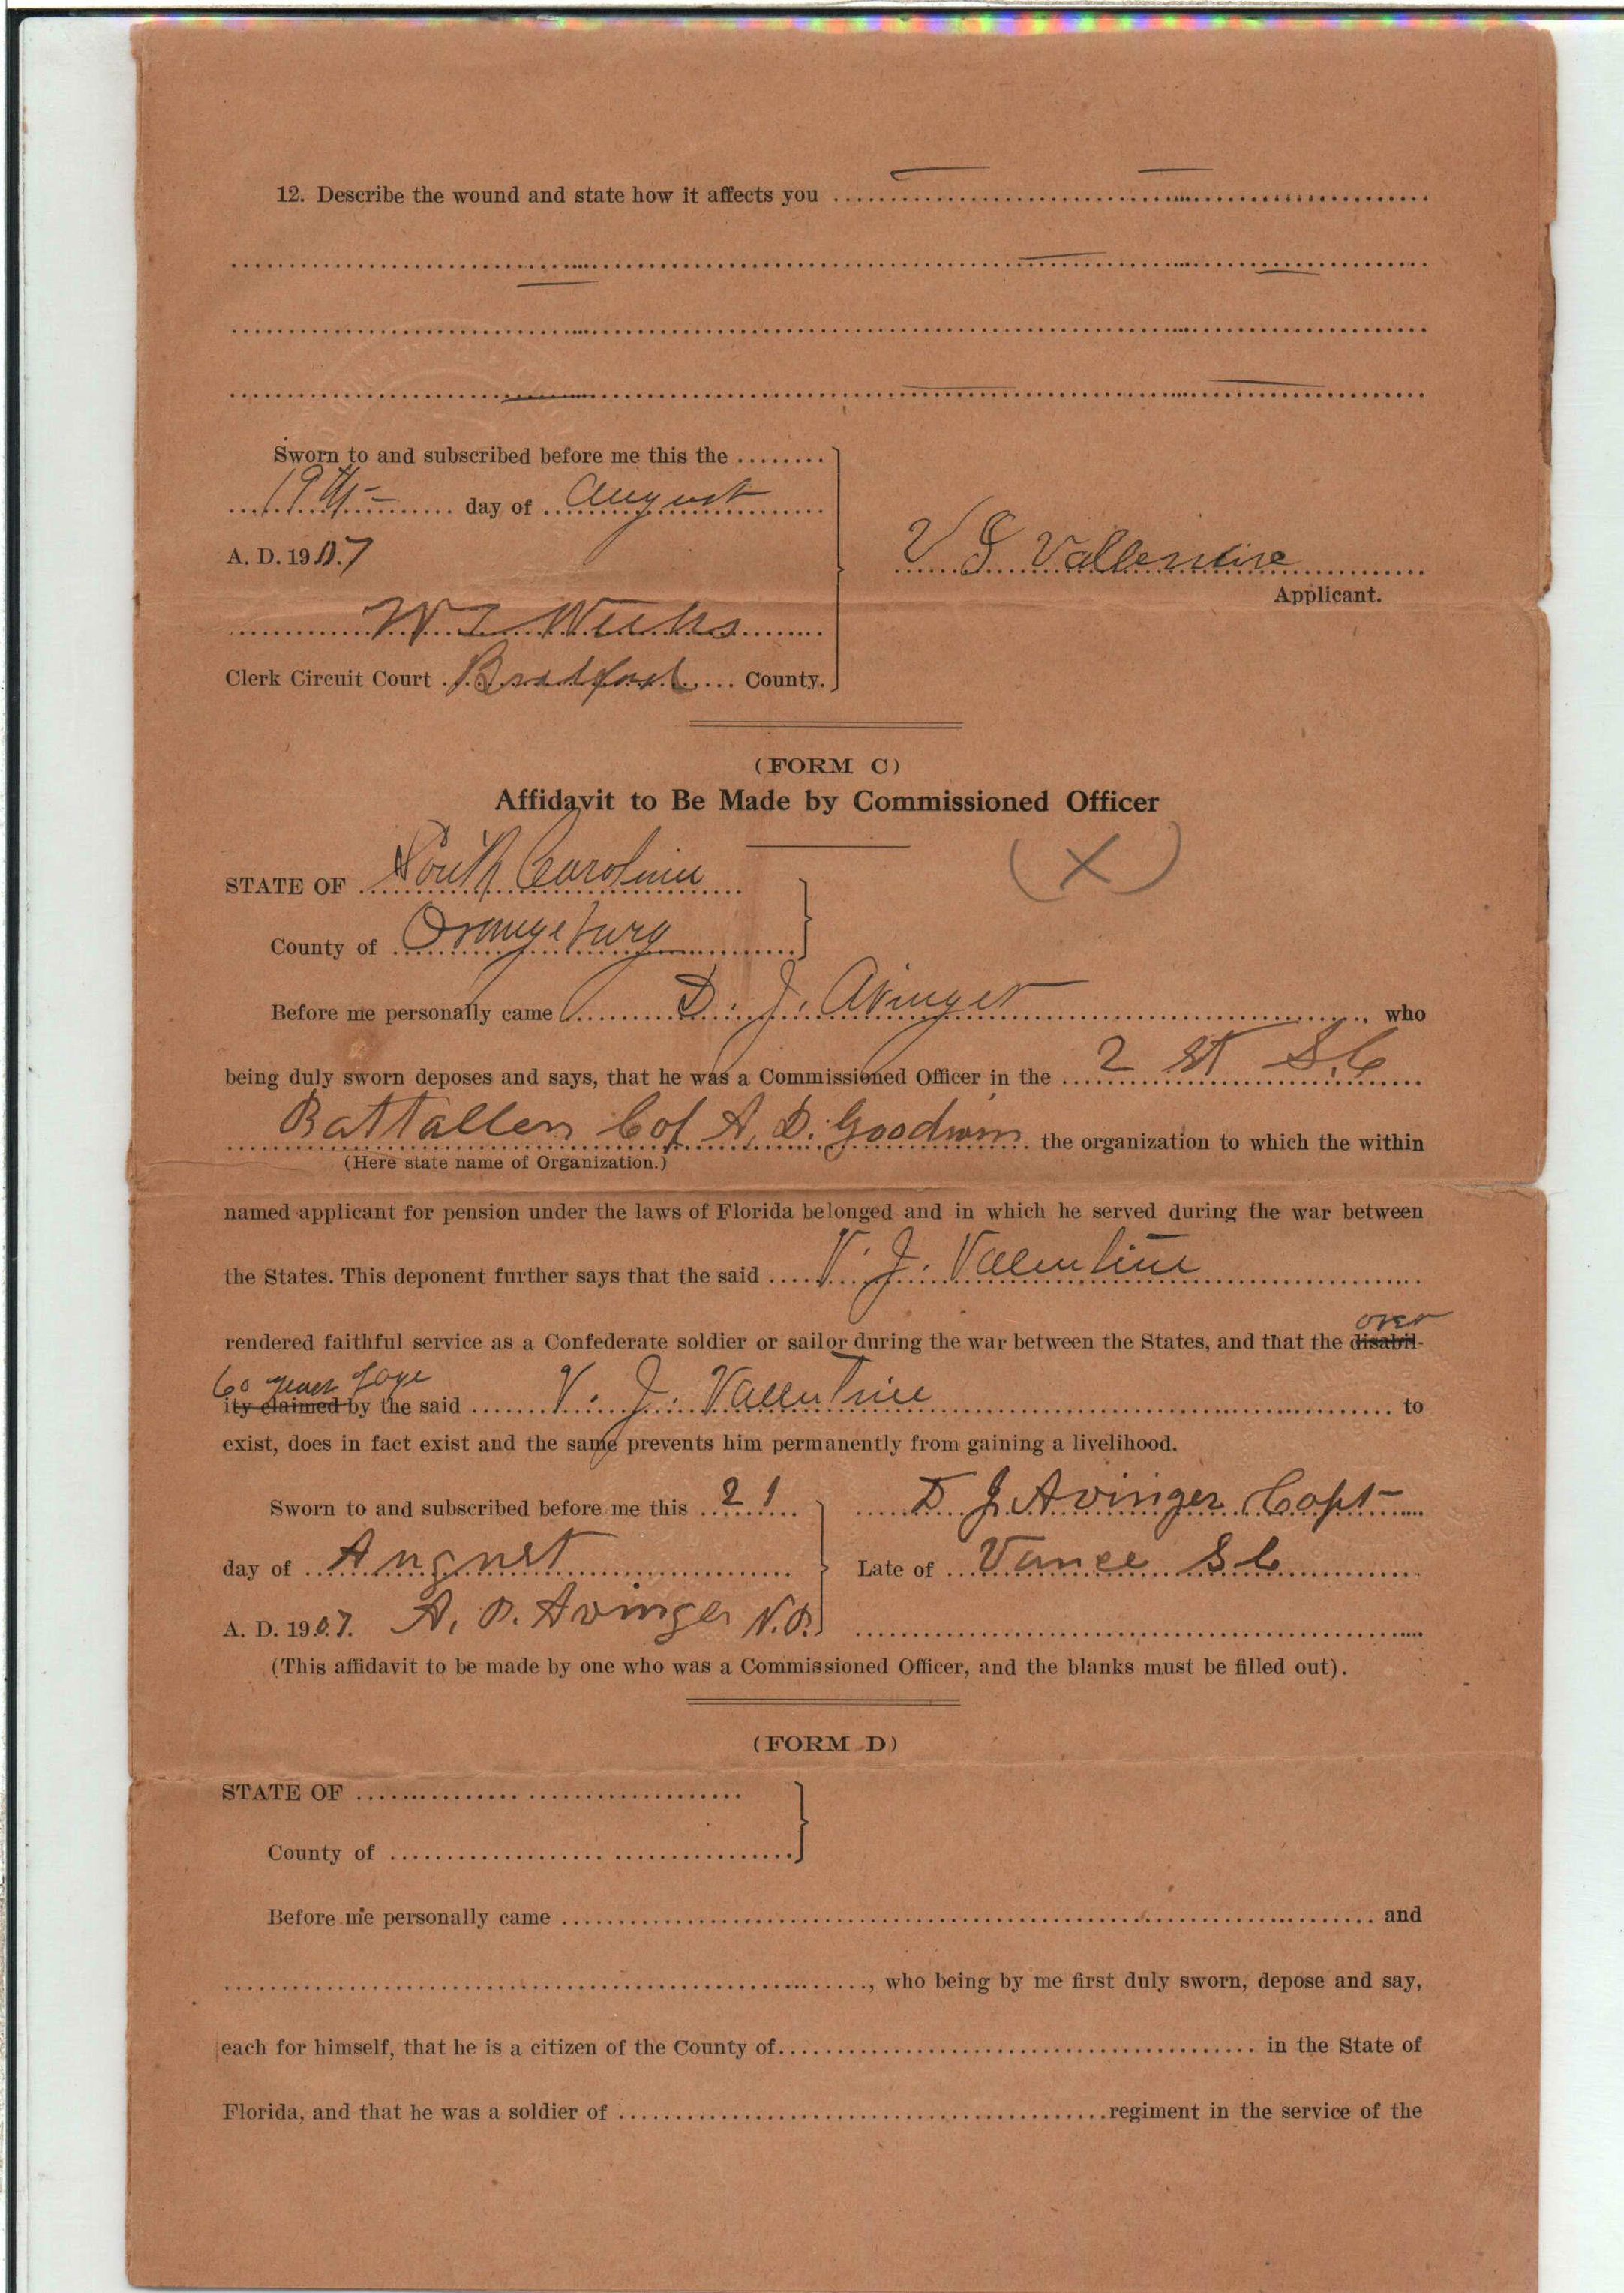 12. Describe the wound and state how it affects you
Sworn to and subscribed before me this the
19th day of August
A. D. 1907
V J Vallentine
Applicant.
Clerk Circuit Court Bradford County.
(FORM C)
Affidavit to Be Made by Commissioned Officer
(X)
STATE OF South Carolina
County of Orangeburg
Before me personally came D. J. Avinger who
being duly sworn deposes and says, that he was a Commissioned Officer in the 2 St S.C
Battallen Col A. D. Goodwin the organization to which the within
(Here state name of Organization.)
named applicant for pension under the laws of Florida belonged and in which he served during the war between
the States. This deponent further says that the said V. J. Valentine
over
rendered faithful service as a Confederate soldier or sailor during the war between the States, and that the disabil-
60 years of age
ity claimed by the said V. J. Vallentine to
exist, does in fact exist and the same prevents him permanently from gaining a livelihood.
Sworn to and subscribed before me this 21 D. J Avinger Capt
day of August Late of Vance S C
A. D. 1907. A. P. Avinger N.P.
(This affidavit to be made by one who was a Commissioned Officer, and the blanks must be filled out).
(FORM D)
STATE OF
County of
Before me personally came and
, who being by me first duly sworn, depose and say,
each for himself, that he is a citizen of the County of in the State of
Florida, and that he was a soldier of regiment in the service of the